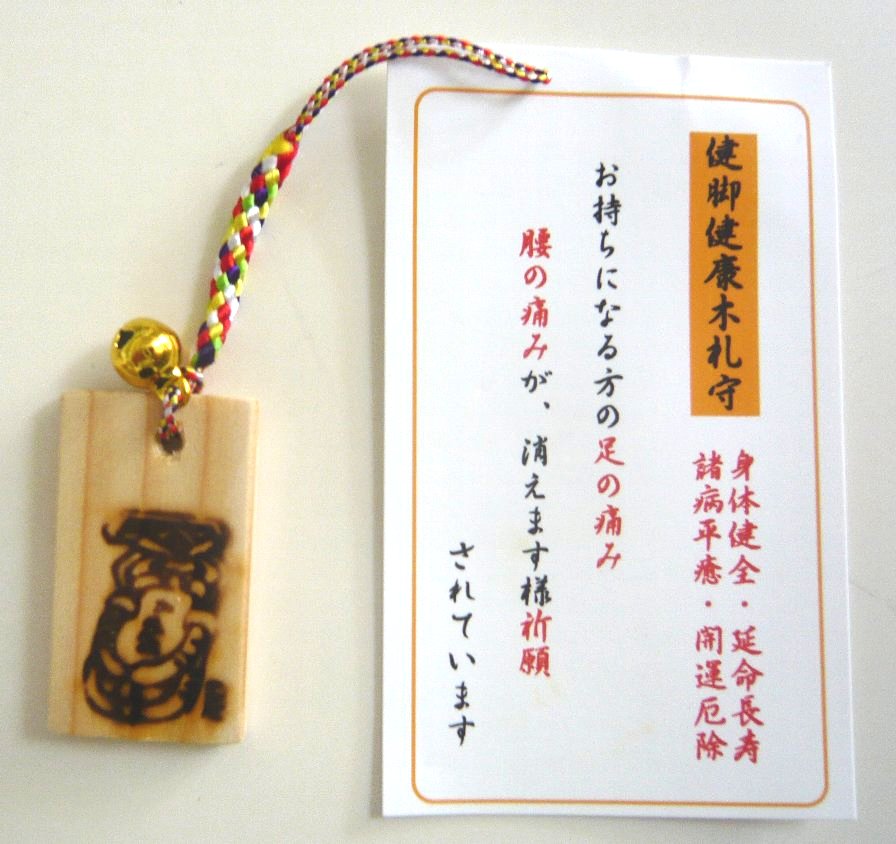 健脚健康木札守
身体健全・延命長寿
諸病平癒・開運厄除
お持ちになる方の足の痛み
腰の痛みが、消えます様祈願
されています